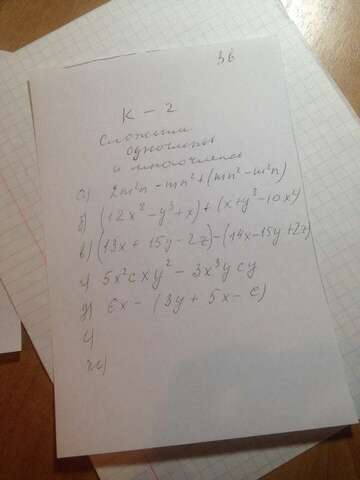 3в
К - 2
Сложение
одночленов
и многочленов
а) 2m²n - mn² + (mn² - m²n)
б) (12x² - y³ + x) + (x + y³ - 10x²)
в) (13x + 15y - 2z) - (14x - 15y + 2z)
г) 5x²cxy² - 3x³ycy
д) cx - (3y + 5x - c)
е)
ж)